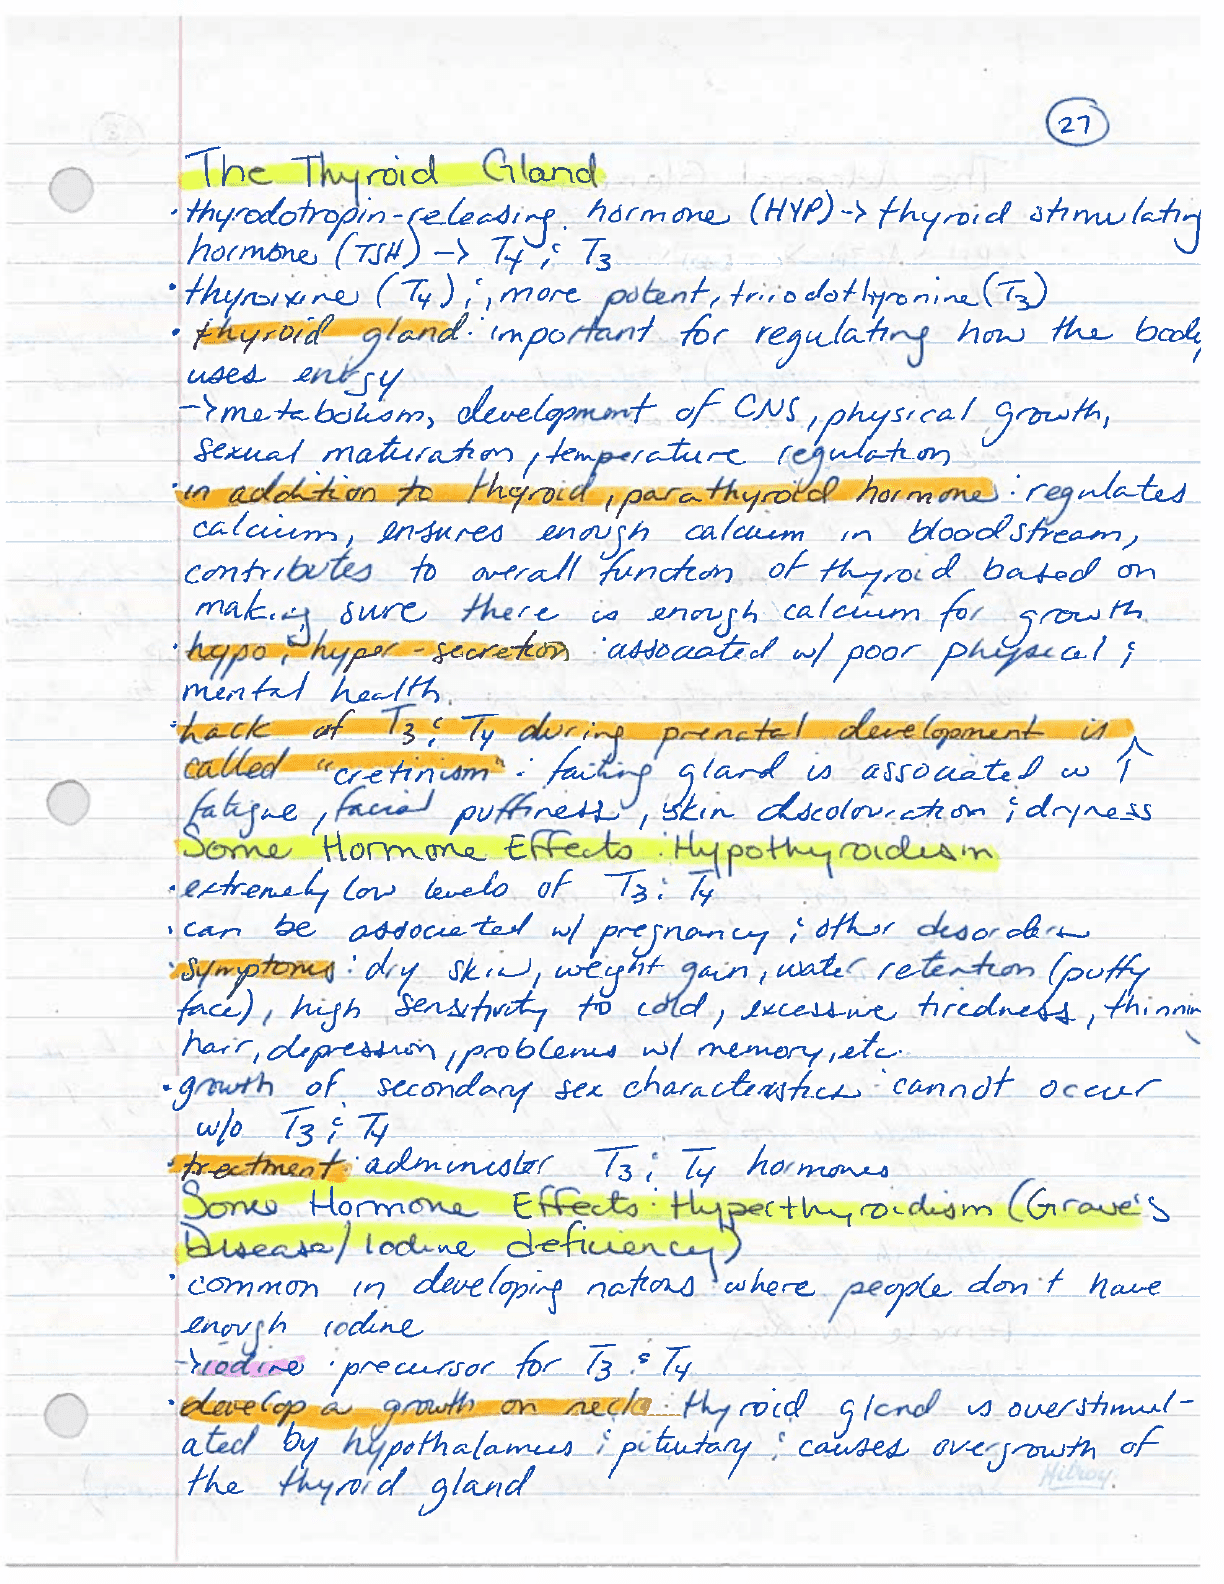 27
The Thyroid Gland
· thyrodotropin-releasing hormone (HYP) -> thyroid stimulating
hormone (TSH) -> T4 & T3
· thyroixine (T4) &, more potent, triiodothyronine (T3)
· thyroid gland: important for regulating how the body
uses energy
-> metabolism, development of CNS, physical growth,
sexual maturation, temperature regulation
· in addition to thyroid, parathyroid hormone: regulates
calcium, ensures enough calcium in bloodstream,
contributes to overall function of thyroid based on
making sure there is enough calcium for growth
· hypo & hyper-secretion: associated w/ poor physical &
mental health.
· Lack of T3 & T4 during prenatal development is
called "cretinism": failing gland is associated w ↑
fatigue, facial puffiness, skin discolouration & dryness
Some Hormone Effects: Hypothyroidism
· extremely low levels of T3 & T4
· can be associated w/ pregnancy & other disorders
· symptoms: dry skin, weight gain, water retention (puffy
face), high sensitivity to cold, excessive tiredness, thinnin
hair, depression, problems w/ memory, etc.
· growth of secondary sex characteristics cannot occur
w/o T3 & T4
· treatment: administer T3 & T4 hormones
Some Hormone Effects: Hyperthyroidism (Grave's
Disease/Iodine deficiency)
· common in developing nations where people don't have
enough iodine
-> iodine: precursor for T3 & T4
· develop a growth on neck: thyroid gland is overstimul-
ated by hypothalamus & pituitary & causes overgrowth of
the thyroid gland
Hilroy